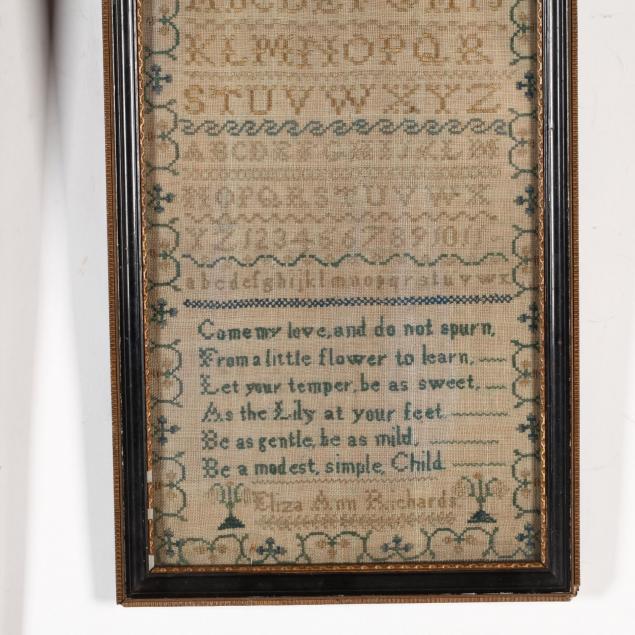 ABCDEFGHIJ
KLMNOPQR
STUVWXYZ
ABCDEFGHIJKLM
NOPQRSTUVWX
YZ1234567891011
abcdefghijklmnopqrstuvwx
Come my love, and do not spurn,
From a little flower to learn,
Let your temper, be as sweet,
As the Lily at your feet
Be as gentle, be as mild,
Be a modest, simple, Child
Eliza Ann Richards